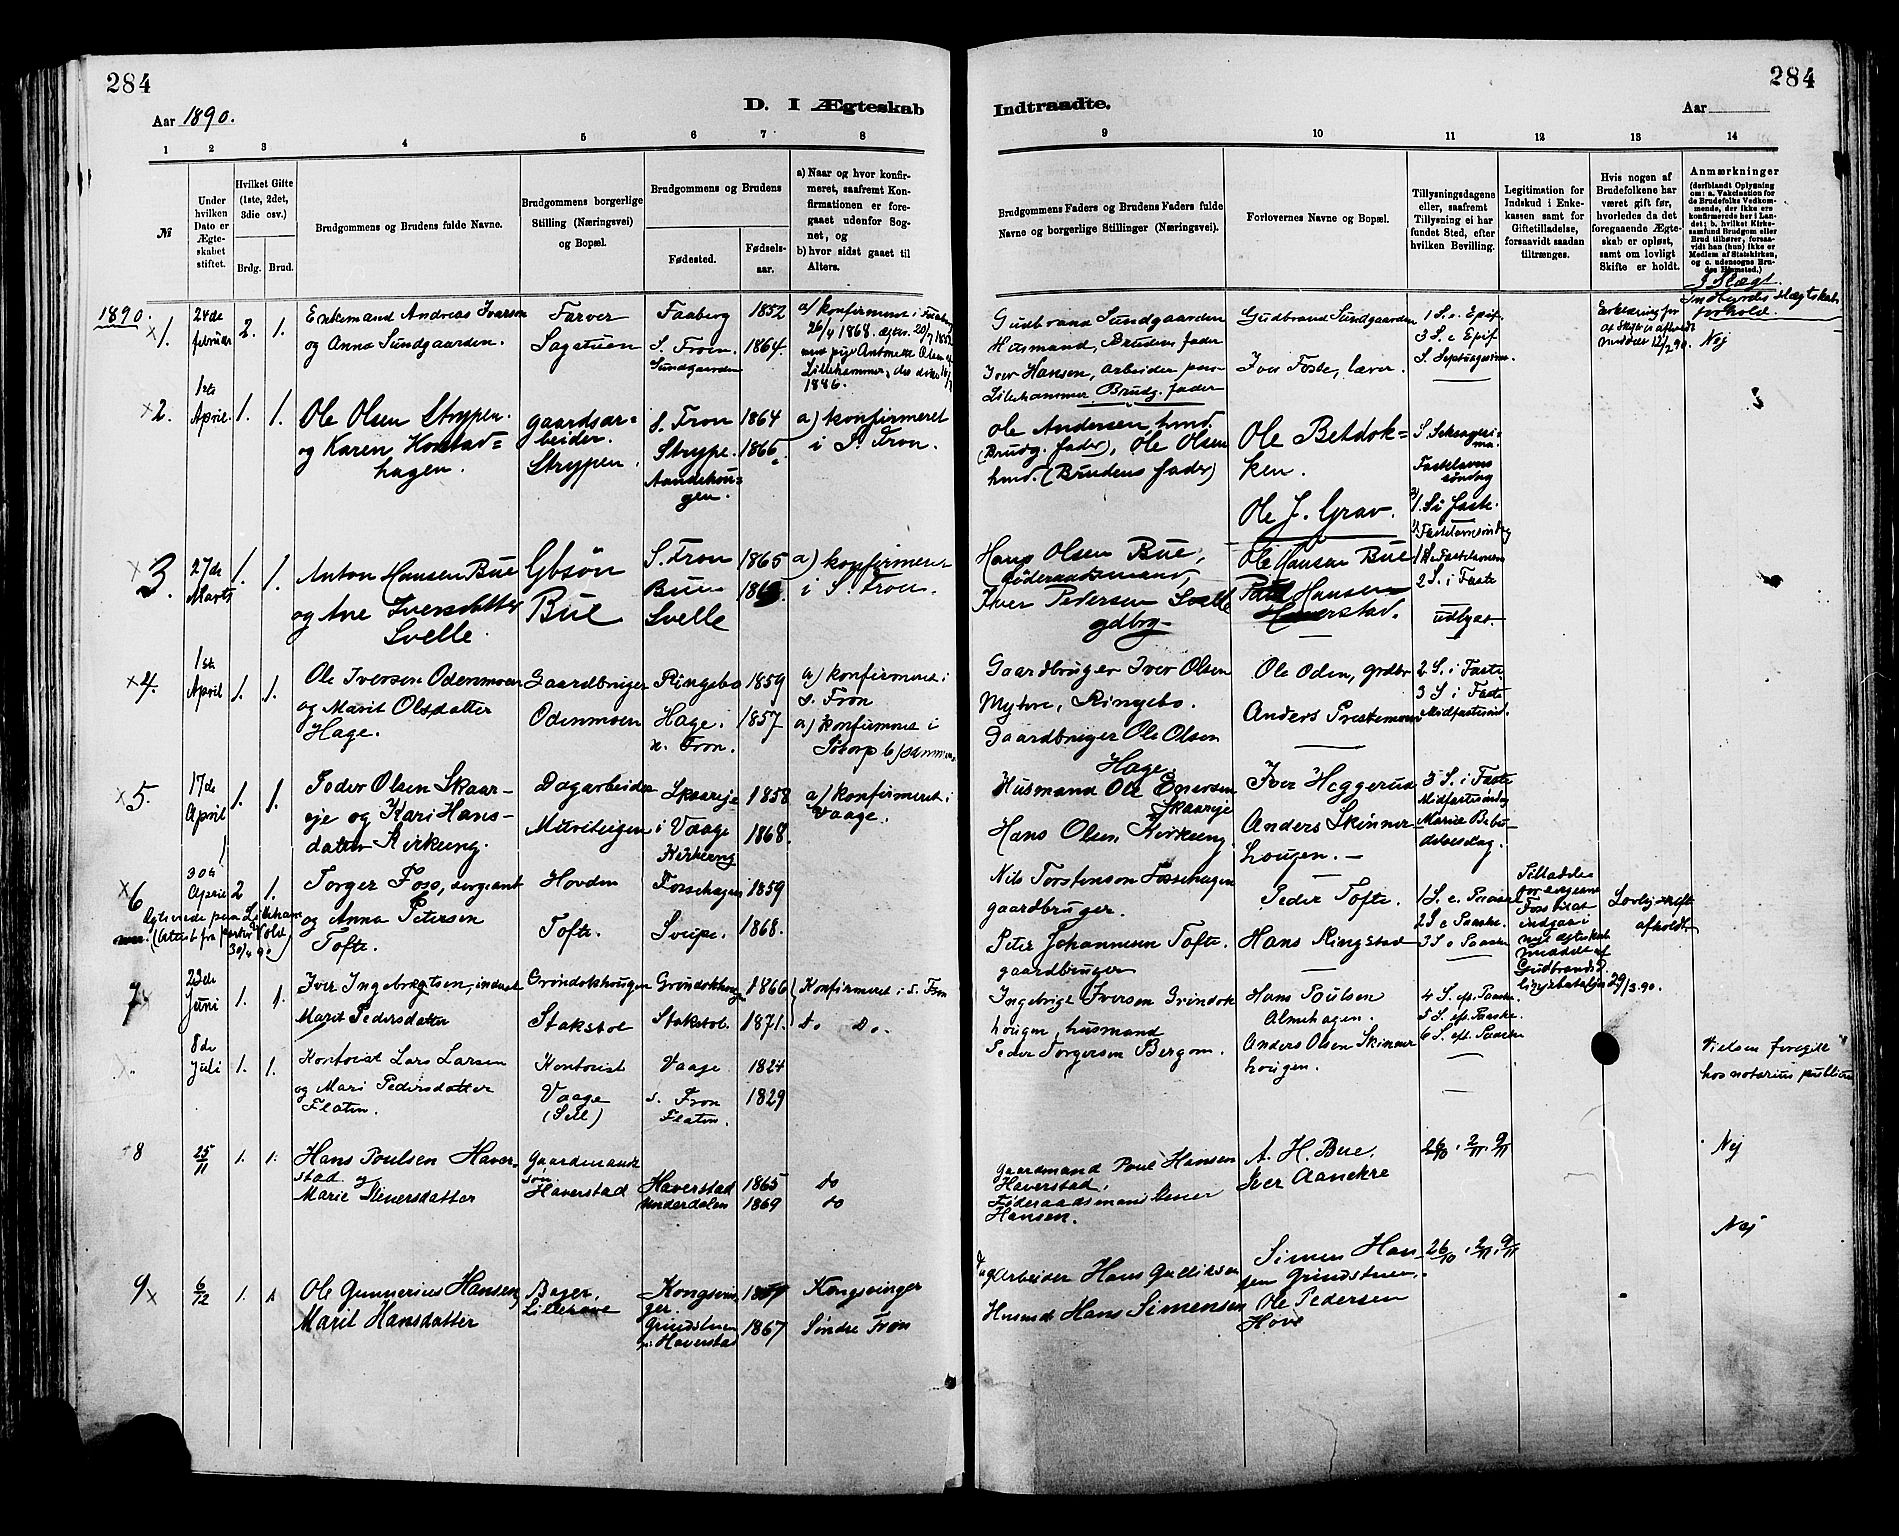 284
284
Aar 1890.
D. I Ægteskab Indtraadte.
Aar
1 2 3 4 5 6 7 8 9 10 11 12 13 14
№
Under hvilken Dato er Ægteskabet stiftet.
Hvilket Gifte (1ste, 2det, 3die osv.)
Brdg. Brud.
Brudgommens og Brudens fulde Navne.
Brudgommens borgerlige Stilling (Næringsvei) og Bopæl.
Brudgommens og Brudens
Fødested.
Fødselsaar.
a) Naar og hvor konfirmeret, saafremt Konfirmationen er foregaaet udenfor Sognet, og
b) hvor sidst gaaet til Alters.
Brudgommens Faders og Brudens Faders fulde Navne og borgerlige Stillinger (Næringsvei).
Forlovernes Navne og Bopæl.
Tillysningsdagene eller, saafremt Tillysning ei har fundet Sted, efter hvilken Bevilling.
Legitimation for Indskud i Enkekassen samt for Giftetilladelse, forsaavidt saadan tiltrænges.
Hvis nogen af Brudefolkene har været gift før, hvorledes da det foregaaende Ægteskab er opløst, samt om lovligt Skifte er holdt.
Anmærkninger
(deriblandt Oplysning om: a. Vakcination for de Brudefolks Vedkommende, der ikke ere konfirmerede her i Landet; b. hvilket Kirkesamfund Brudgom eller Brud tilhører, forsaavidt han (hun) ikke er Medlem af Statskirken, og c. udensogns Brudes Hjemsted.)
1890.
1. 24de Februar 2. 1.
Enkemand Andreas Iversen
og Anna Sundgaarden.
Farver
Sagstuen
Faaberg 1852
S. Fron 1864.
Sundgaarden
a) konfirmeret i Faaberg
26/4 1868.
Lillehammer,
1886.
Gudbrand Sundgaarden
Husmand, Brudens fader
Iver Hansen, arbeider paa
Lillehammer Brudg. fader
Gudbrand Sundgaarden
Iver Foste,
1 S. e. Epif.
3 S. e. Epif.
S. Septuagesima
Nej
2. 1ste April. 1. 1.
Ole Olsen Strypen.
og Karen
hagen.
gaardsarbeider.
Strypen.
S. Fron 1864
Strype. 1865
a) konfirmeret
i S. Fron.
Ole Andersen, hmd.
(Brudg. fader), Ole Olsen
hmd. (Brudens fader)
Ole Betdokken.
Ole J. Grav.
S. Seksagesima.
Fastelavns
søndag
1. S. i faste.
3. 27de Marts 1. 1.
Anton Hansen Bue
og Ane Iversdatter
Svelle.
Gbsøn
Bue
S. Fron 1865
Bue
Svelle
a) konfirmeret
i S. Fron.
Hans Olsen Bue,
føderaadsmand,
Iver Pedersen Svelle
gdbrg
Ole Hansen Bue
Poul Hansen
Haverstad.
2 S. i Faste
4. 1ste April 1. 1.
Ole Iversen Odenmoen
og Marit Olsdatter
Hage.
Gaardbruger
Odenmoen
Ringebo 1859
Hage. 1857.
n. Fron.
a) konfirmeret i
S. Fron
a) konfirmeret i
Sødorp
Gaardbruger Iver Olsen
Myhre, Ringebo.
Gaardbruger Ole Olsen
Hage.
Ole Oden, grdbr
Anders Prestemoen
2 S. i Faste
3 S. i Faste
Midfastesønd.
5. 17de April 1. 1.
Peder Olsen Skaar-
eje og Kari Hans-
datter Kirkeeng.
Dagarbeider
Skaareje 1858
i Vaage 1868.
Kirkeeng
a) konfirmeret i
Vaage.
Husmand Ole
Skaareje
Hans Olsen Kirkeeng
Iver Heggerud
Anders Skinner-
hougen.
3 S. i Faste
Midfastesøndag
Mariæ Bebu-
delsesdag.
6 30te April 2 1.
Torger Foss, sergeant
og Anna Petersen
Tofte.
Hovden
Tofte.
Fossehagen 1859
Sveipe. 1868.
(Attest fra
Nils Torstensen Fossehagen
gaardbruger.
Peter Johannesen Tofte,
gaardbruger
Peder Tofte,
Hans Ringstad
1 S. e. Paaske
2 S. e. Paaske.
3 S. e. Paaske
Tilladelse
for sergeant
Foss til at
indgaa i
nyt ægteskab
meddelt af
Gudbrandsd.
29/3.90.
Lovlig skifte
afholdt
7 23de Juni 1. 1.
Iver Ingebrigtsen,
Marit Pedersdatter
Grindokhougen
Stakstol
Grindokhoug 1866
Stakstol. 1871.
Konfirmeret i S. Fron
Do Do.
Ingebrigt Iversen Grindok-
hougen, husmand
Peder Torgersen Bergom.
Hans Poulsen
Almehagen.
Anders Olsen Skinner
hougen.
4 S. eft. Paaske.
5 S. eft. Paaske.
6 S. eft. Paaske
8de Juli 1. 1.
Kontorist Lars Larsen
og Mari Pedersdatter
Flaten.
Kontorist
Vaage
(Sell)
Vaage 1824
S. Fron 1829
Flaten.
Vielsen foregik
hos notarius publicus
8 25/11 1. 1.
Hans Poulsen Haver-
stad og
Marie Stenersdatter
Gaardmands
søn.
Haverstad
Haverstad 1865
Underdalen 1869
do
do
Gaardmand Poul Hansen
Haverstad,
Føderaadsmand Stener
Hansen.
A. H. Bue,
Iver Aanekre
26/10. 2/11. 9/11
Nej
9 6/12 1. 1
Ole Gunnerius Hansen,
Marit Hansdatter
Bager,
Lillehammer
Kongsvin-
ger.
Grindstuen
Haverstad 1867
Kongsvinger
Søndre Fron
Dagarbeider Hans Gulliksen
Husmd Hans Simensen
Simen Han-
sen Grindstuen,
Ole Pedersen
Hove
26/10. 2/11. 9/11
Nej